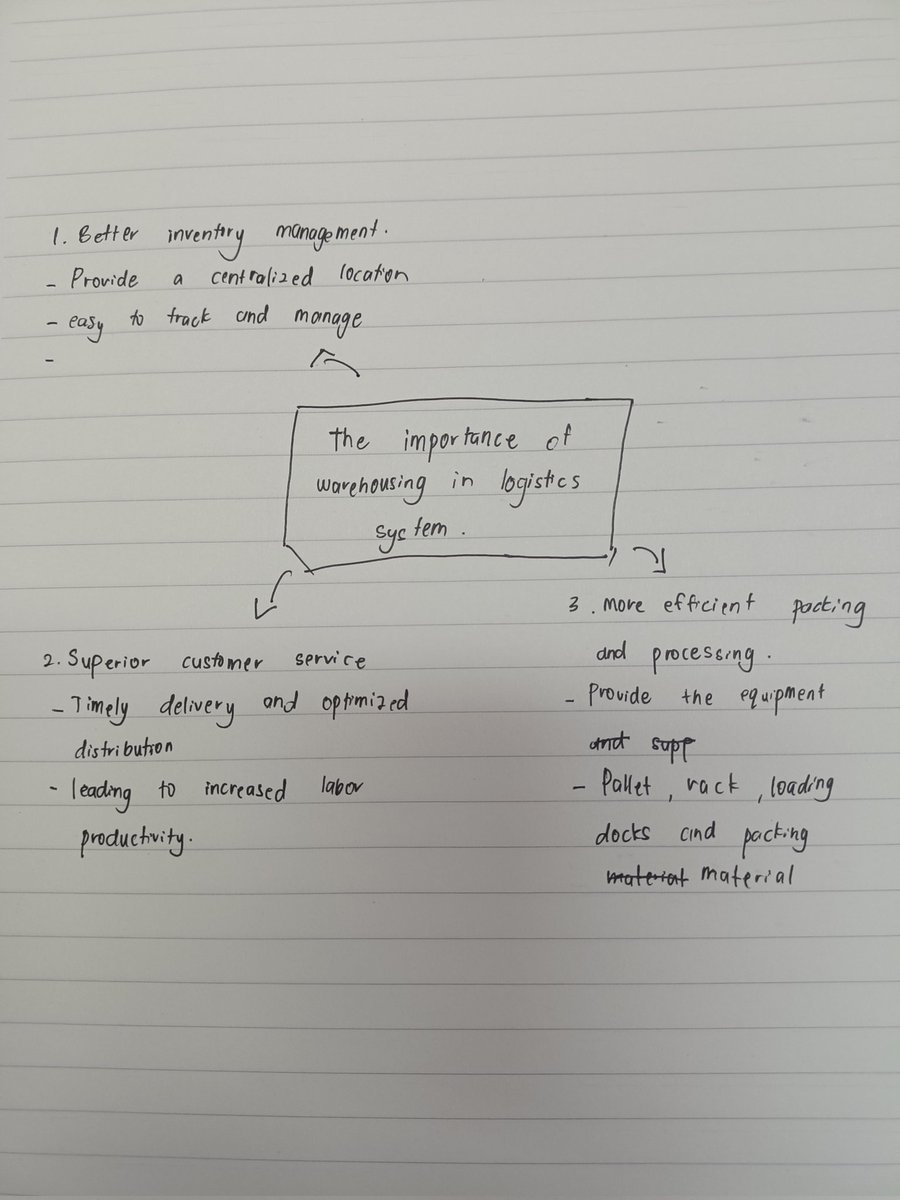 1. Better inventory management.
- Provide a centralized location
- easy to track and manage
-
The importance of
warehousing in logistics
system.
2. Superior customer service
- Timely delivery and optimized
distribution
- leading to increased labor
productivity.
3. More efficient packing
and processing.
- Provide the equipment
and supp
- Pallet, rack, loading
docks and packing
material material